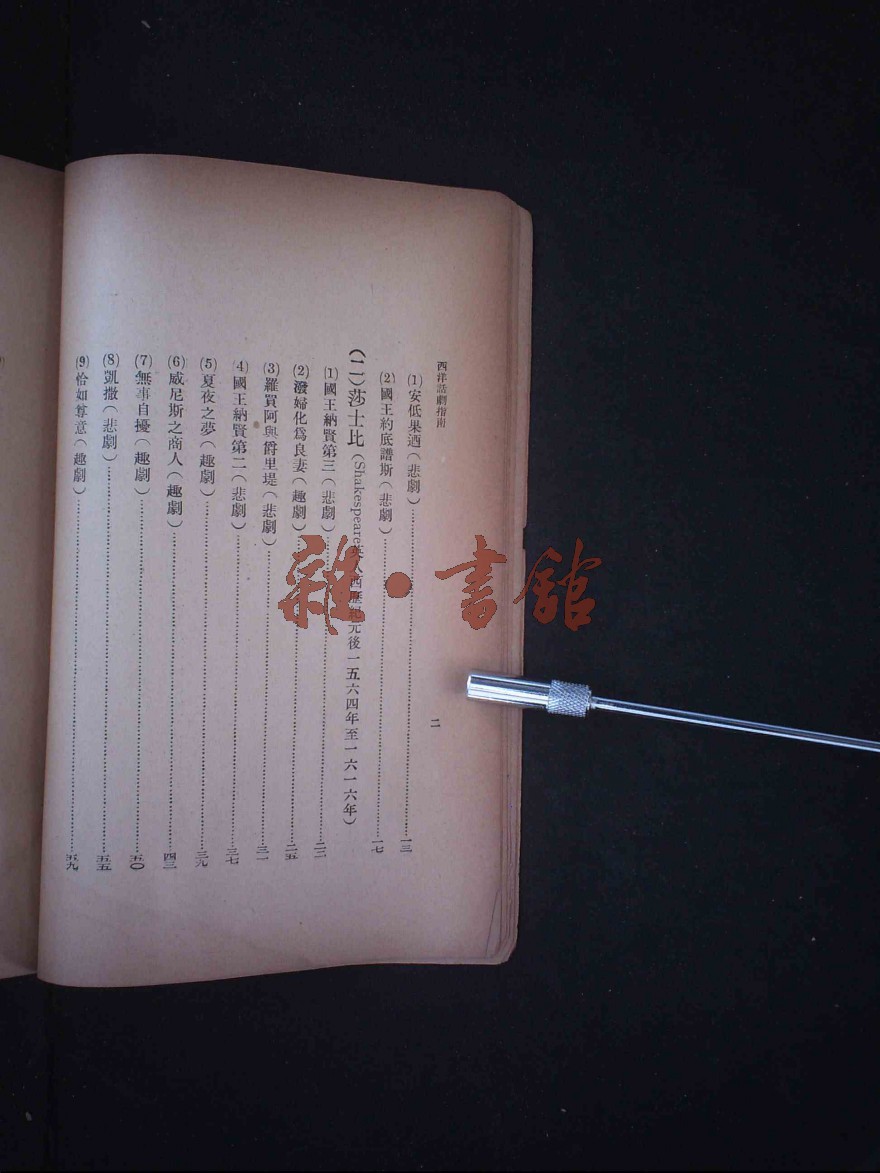 西洋話劇指南
二
(1)安低果迺(悲劇)……一三
(2)國王約底譜斯(悲劇)……一七
(二)莎士比(Shakespeare英人西歷紀元後一五六四年至一六一六年)
(1)國王納賢第三(悲劇)……二二
(2)潑婦化爲良妻(趣劇)……二五
(3)羅買阿與爵里堤(悲劇)……三一
(4)國王納賢第二(悲劇)……三七
(5)夏夜之夢(趣劇)……三九
(6)威尼斯之商人(趣劇)……四三
(7)無事自擾(趣劇)……五〇
(8)凱撒(悲劇)……五五
(9)恰如尊意(趣劇)……五九
雜·書館